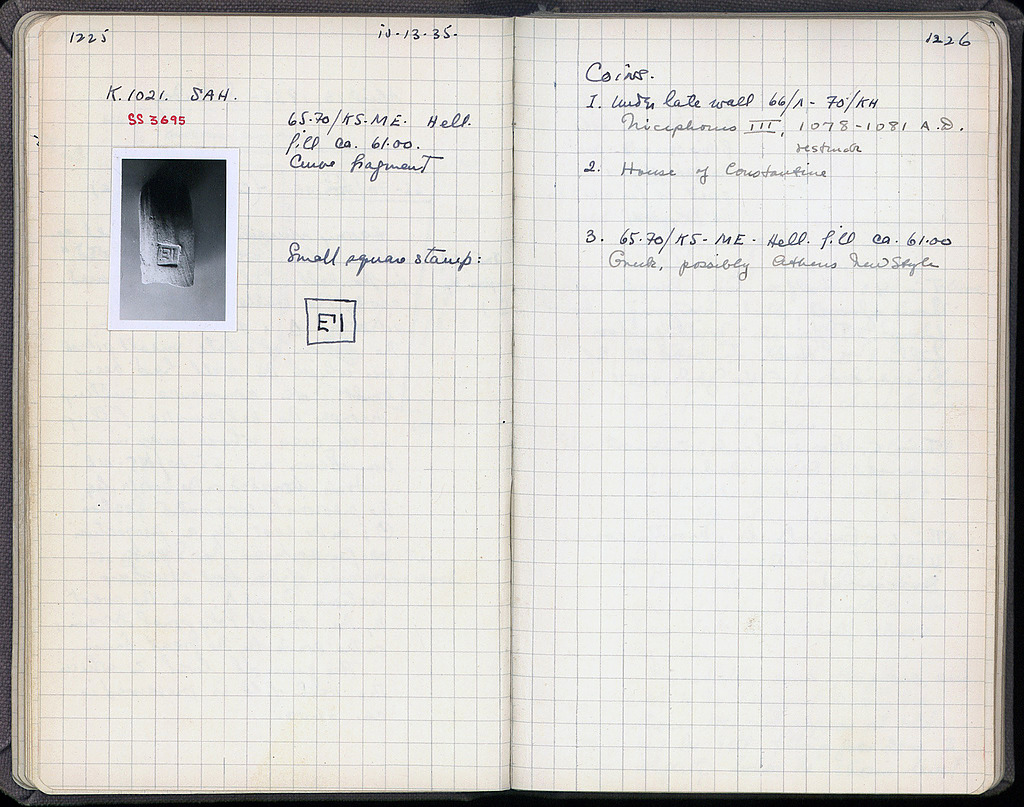 1225
K.1021. SAH.
SS 3695
65-70/ΚΣ-ΜΕ. Hell.
fill ca. 61.00.
Curve fragment
Small square stamp:
ΕΠ
1226
Coins.
1. Under late wall 66/Λ - 70/ΚΗ
Nicephorus III, 1078-1081 A.D.
restruck
2. House of Constantine
3. 65-70/ΚΣ-ΜΕ. Hell. fill ca. 61.00
Greek, possibly Athens New Style